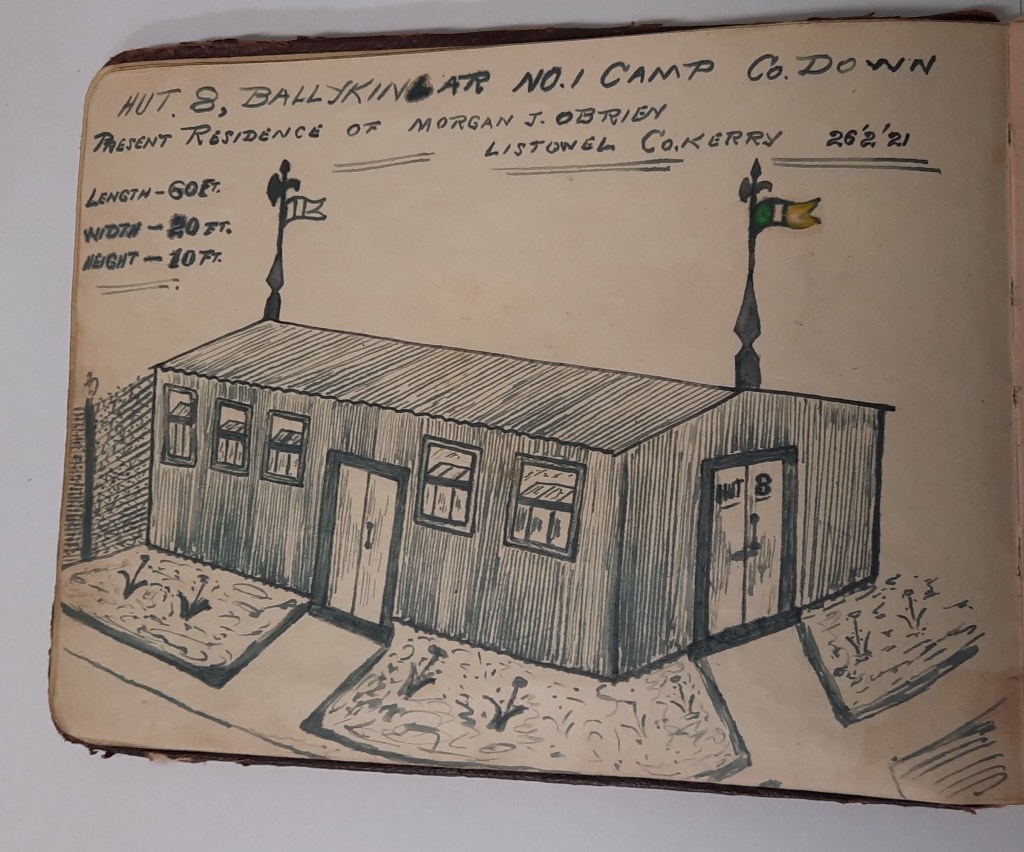 HUT. 8, BALLYKINLAR NO.1 CAMP CO. DOWN
PRESENT RESIDENCE OF MORGAN J. OBRIEN
LISTOWEL CO. KERRY 26'2'21
LENGTH - 60 FT.
WIDTH - 20 FT.
HEIGHT - 10 FT.
HUT 8